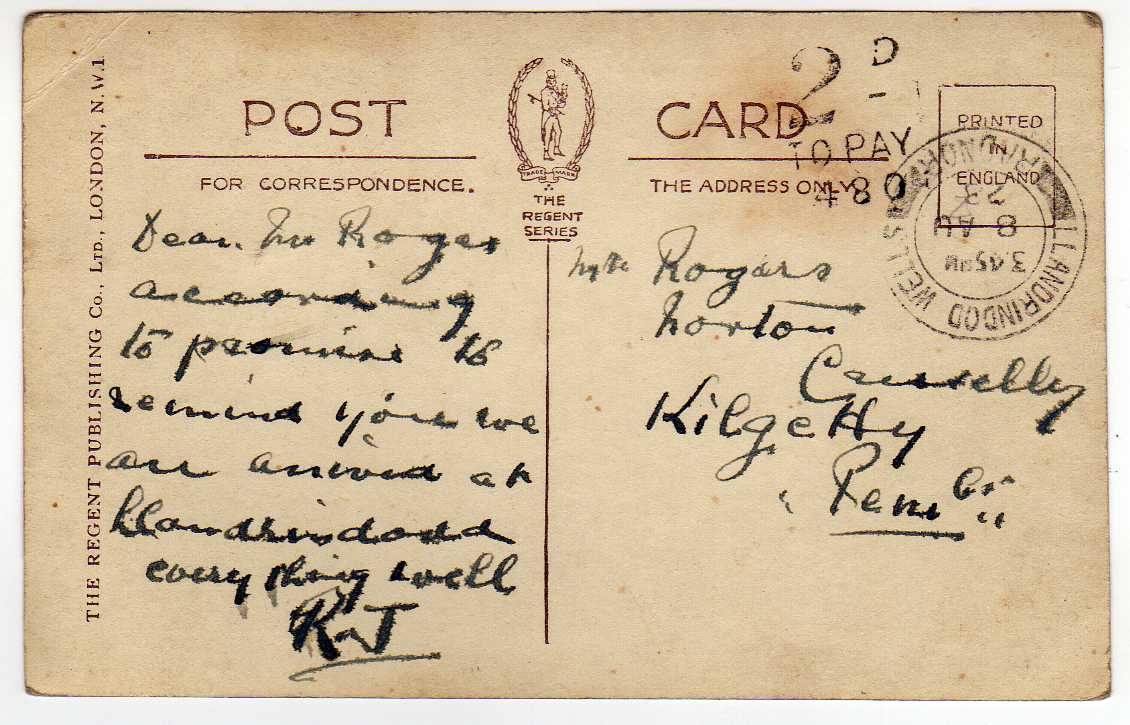 THE REGENT PUBLISHING Co., LTD., LONDON, N.W.1
POST CARD
FOR CORRESPONDENCE.
TRADE MARK
THE
REGENT
SERIES
THE ADDRESS ONLY
PRINTED
IN
ENGLAND
2D
TO PAY
480
LLANDRINDOD WELLS
RADNOR
3.45PM
8 AU
23
Dear Mr Roger
according
to promise to
remind you we
are arrived at
Llandrindodd
every thing well
R J
Rogers
Norton
Kilgetty
"Pem